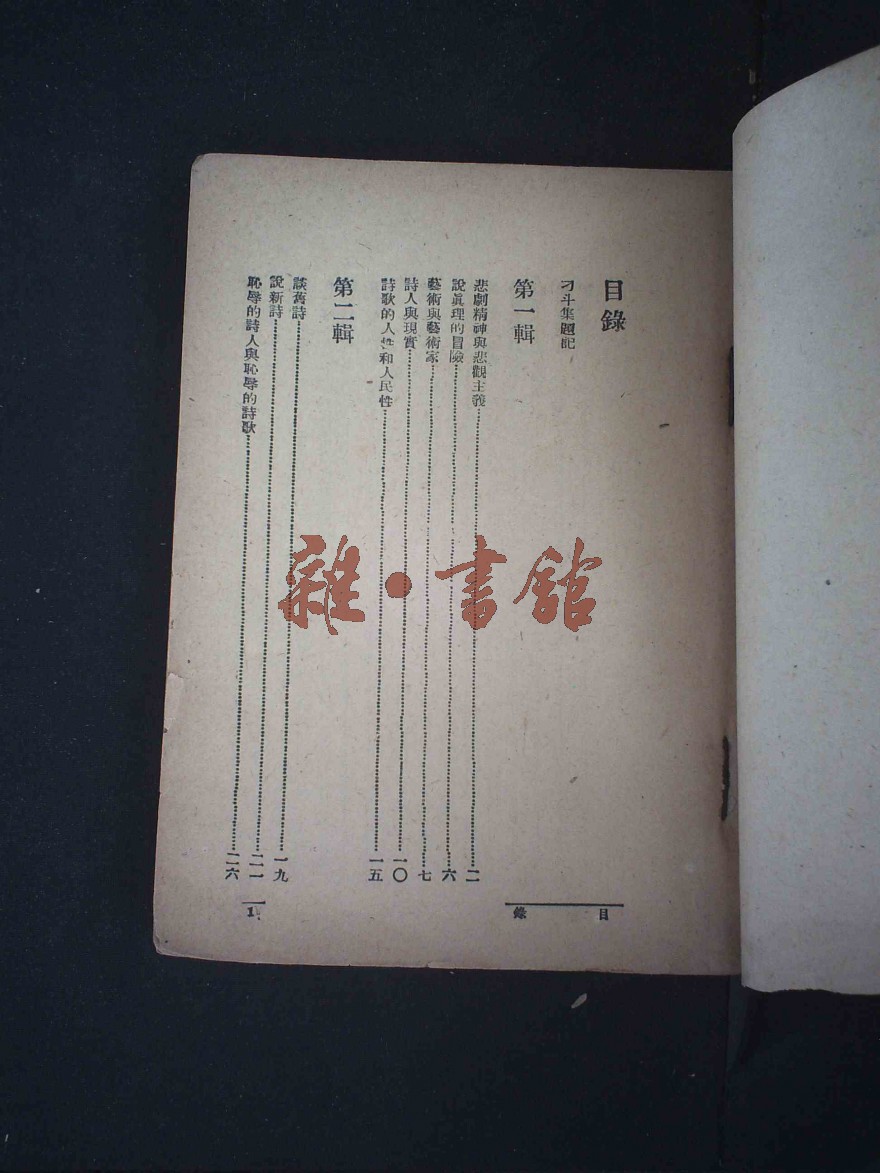 目錄
刁斗集題記
第一輯
悲劇精神與悲觀主義⋯⋯二
說眞理的冒險⋯⋯六
藝術與藝術家⋯⋯七
詩人與現實⋯⋯一〇
詩歌的人性和人民性⋯⋯一五
第二輯
談舊詩⋯⋯一九
說新詩⋯⋯二一
恥辱的詩人與恥辱的詩歌⋯⋯二六
目錄
1
雜·書館